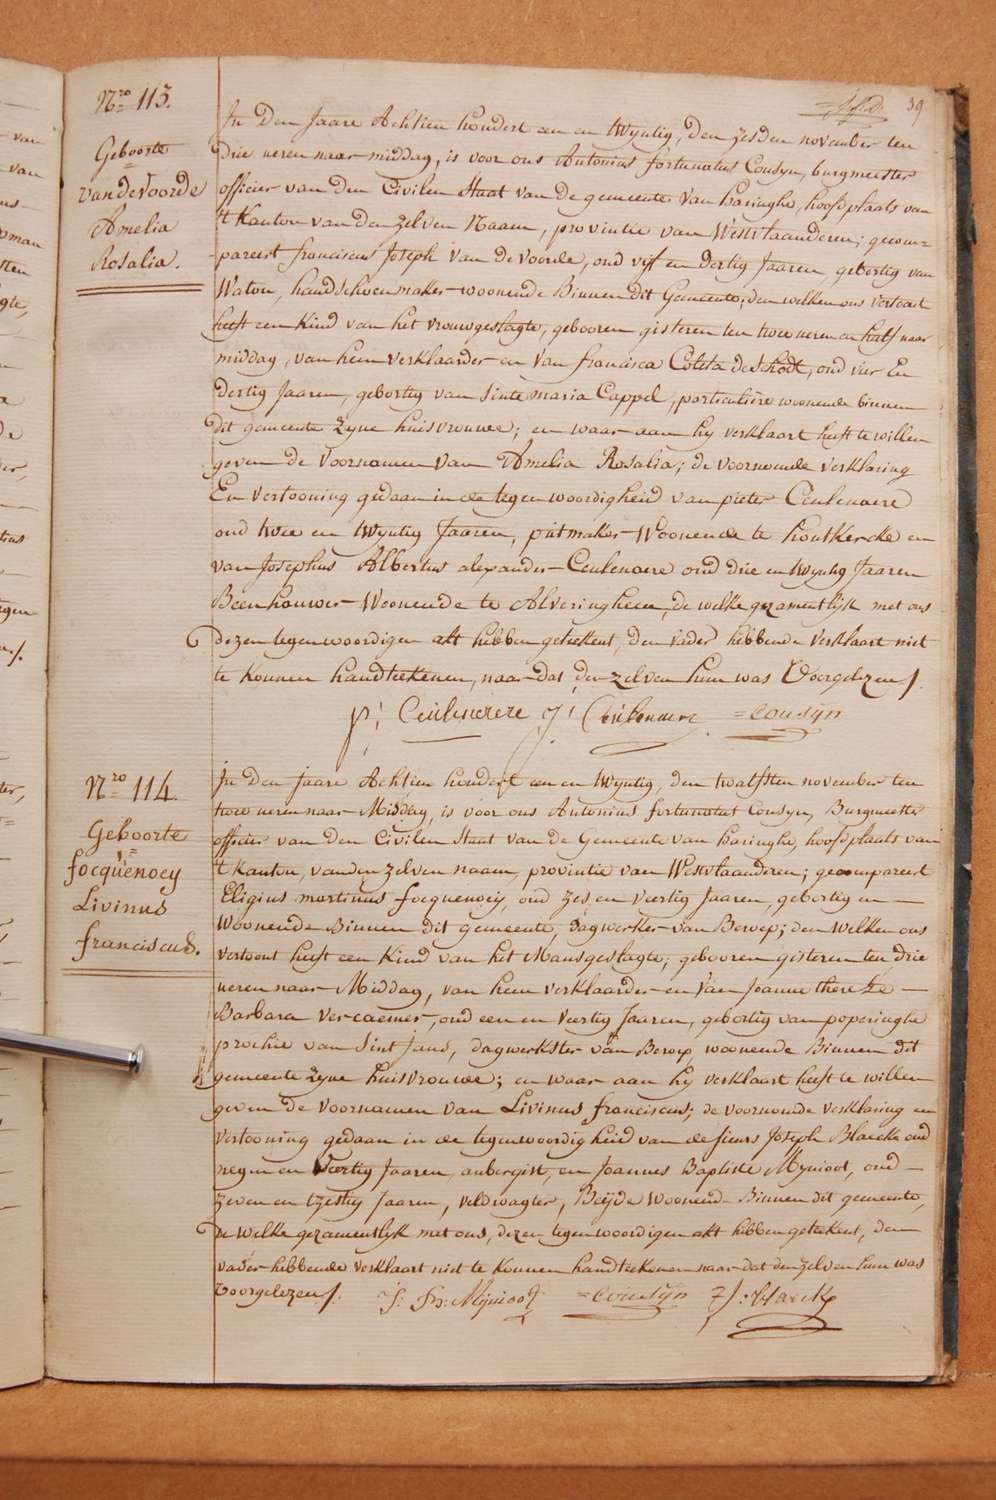 39
Nro 113.
Geboorte
vandeVoorde
Amelia
Rosalia.
In Den Jaare Achtien hondert een en twyntig, den zesden november ten
drie ueren naar middag, is voor ons Antonius fortunatus Cousyn, burgmeester
officier van den Civilen Staat van de gemeente van haringhe, hoofdplaats van
't Kanton van den zelven Naam, provintie van Westvlaanderen; gecom-
-pareert franciscus Joseph van de Voorde, oud vijf en dertig Jaaren, gebortig van
Watou, handschoenmaker woonende Binnen dit Gemeente, den welken ons vertoont
heeft een Kind van het vrouwgeslagte, gebooren gisteren ten twee ueren en half naar
middag, van hem verklaarder en van francisca Coleta deSchodt, oud vier En
dertig Jaaren, gebortig van Sinte maria Cappel, particuliere woonende binnen
dit gemeente Zyne huisvrouwe; en waar aan hy verklaart heeft te willen
geven de voornamen van Amelia Rosalia; de voornoemde verklaring
En vertooning gedaan in de tegenwoordigheid van pieter Ceulenaere
oud twee en twyntig Jaaren, putmaker Woonende te houtkercke en
van Josephus Albertus alexander Ceulenaere oud drie en twyntig Jaaren
Beenhouwer Woonende te Alveringhem, de welke gezamentlijk met ons
dezen tegenwoordigen akt hebben geteekent, den vader hebbende verklaart niet
te Konnen handteekenen, naar dat den zelven hem was Voorgelezen /.
p: Ceulenaere J: Ceulenaere =Cousyn
Nro 114.
Geboorte
focquenoey
Livinus
franciscus.
In Den Jaare Achtien hondert een en twyntig, den twalfsten november ten
twee ueren naar Middag, is voor ons Antonius fortunatus Cousyn, Burgmeester
officier van den Civilen Staat van de Gemeente van haringhe, hoofdplaats van
't Kanton, van den zelven naam, provintie van Westvlaanderen; gecompareert
Eligius martinus focquenoey, oud zes en veertig Jaaren, gebortig en
Woonende Binnen dit gemeente, dagwerker van Beroep; den welken ons
vertoont heeft een Kind van het Mansgeslagte; gebooren gisteren ten drie
ueren naar Middag, van hem verklaarder en van Joanne therese
Barbara Vercaemer, oud een en veertig Jaaren, gebortig van poperinghe
prochie van Sint Jans, dagwerkster van Beroep, woonende Binnen dit
gemeente Zyne huisvrouwe; en waar aan hy verklaart heeft te willen
geven de voornamen van Livinus franciscus; de voornoemde verklaring en
vertooning gedaan in de tegenwoordigheid van de sieurs Joseph Blaecke oud
negen en Veertig Jaaren, aubergist, en Joannes Baptiste Mynioot, oud
zeven en tzestig Jaaren, veldwagter, Beyde woonend Binnen dit gemeente,
De welke gezamentlyk met ons, dezen tegenwoordigen akt hebben geteekent, den
vader hebbende verklaart niet te Konnen handteekenen naar dat den zelven hem was
voorgelezen /. J: B: Mynioot =Cousyn J: Blaecke